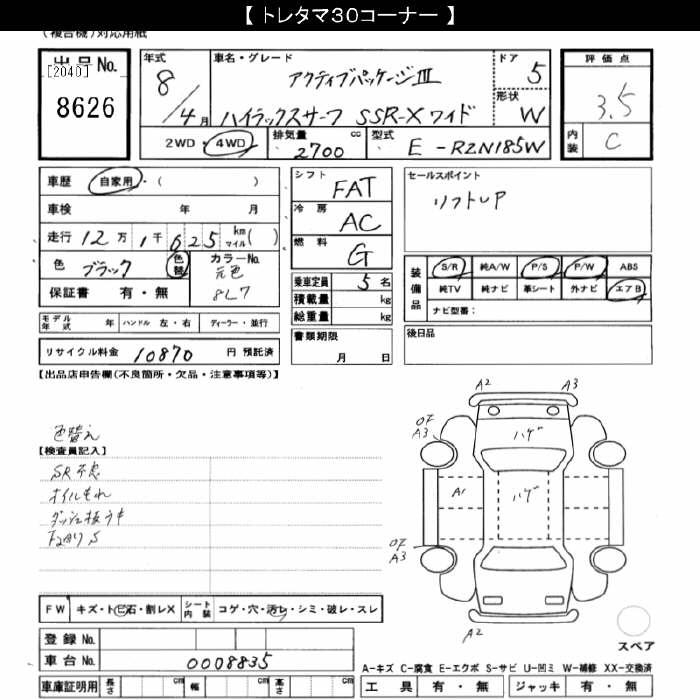 【 トレタマ30コーナー 】
(複合機)対応用紙
出品No.
[2040]
8626
年式
8
/4月
車名・グレード
アクティブパッケージⅢ
ハイラックスサーフ SSR-Xワイド
ドア
5
形状
W
評価点
3.5
内装
C
2WD・4WD
排気量
2700
cc
型式
E-RZN185W
車歴 自家用・( )
車検 年 月
走行 12万1千625 km マイル( )
色 ブラック 色替
カラーNo.
元色
8L7
保証書 有・無
シフト
FAT
冷房
AC
燃料
G
乗車定員 5名
積載量 kg
総重量 kg
書類期限
月 日
セールスポイント
リフトUP
装備品
S/R 純A/W P/S P/W ABS
純TV 純ナビ 革シート 外ナビ エアB
ナビ型番:
後日品
モデル年式 年 ハンドル 左・右 ディーラー・並行
リサイクル料金 10870 円 預託済
【出品店申告欄(不良箇所・欠品・注意事項等)】
色替え
【検査員記入】
SR不良
オイルもれ
ダッシュ板うキ
下廻りS
A2 A3
OF
A3
ハゲ
A1
ハゲ
OF
A3
A2
スペア
FW キズ・トビ石・割レX シート内装 コゲ・穴・汚レ・シミ・破レ・スレ
登録No.
車台No. 0008835
車庫証明用 長さ cm 幅 cm 高さ cm
A-キズ C-腐食 E-エクボ S-サビ U-凹ミ W-補修 XX-交換済
工具 有・無 ジャッキ 有・無